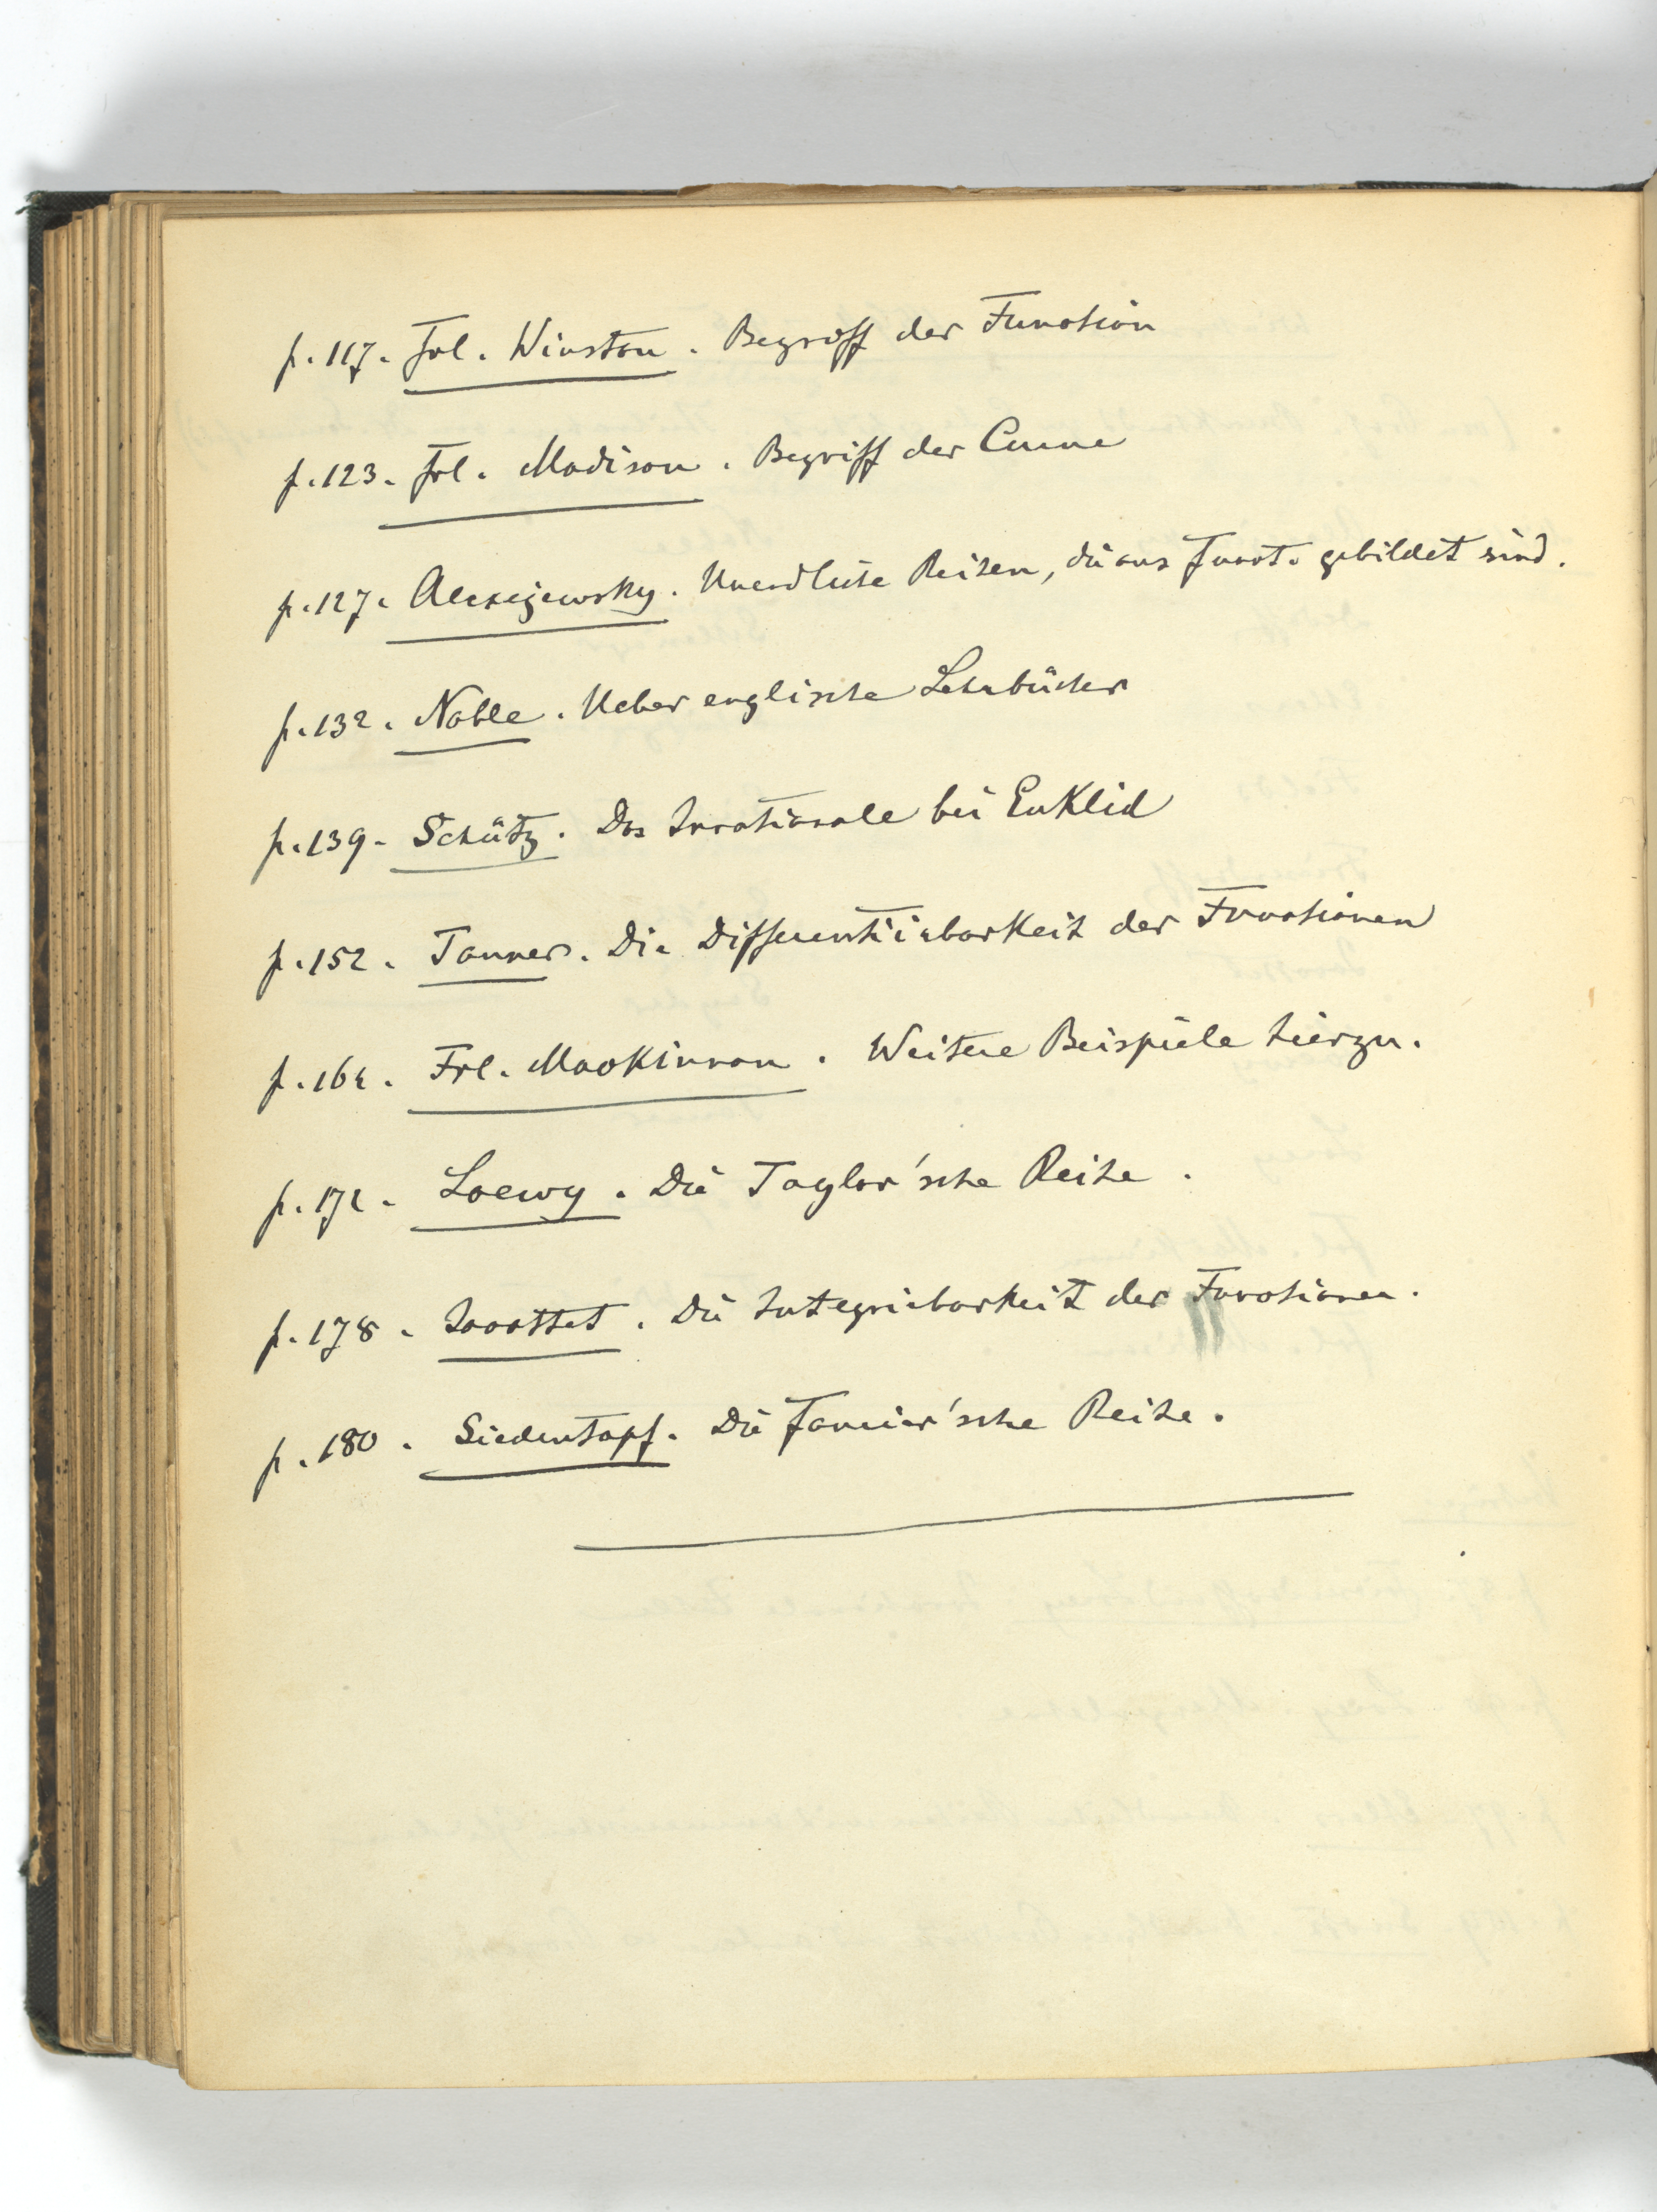 p. 117. Frl. Winston. Begriff der Function
p. 123. Frl. Madison. Begriff der Curve
p. 127. Alexejewsky. Unendliche Reihen, die aus Funct. gebildet sind.
p. 132. Noble. Ueber englische Lehrbücher
p. 139. Schütz. Das Irrationale bei Euklid
p. 152. Tanner. Die Differentiirbarkeit der Functionen
p. 162. Frl. Mackinnon. Weitere Beispiele hierzu.
p. 172. Loewy. Die Taylor'sche Reihe.
p. 178. Jaccottet. Die Integrirbarkeit der Functionen.
p. 180. Siedentopf. Die Fourier'sche Reihe.